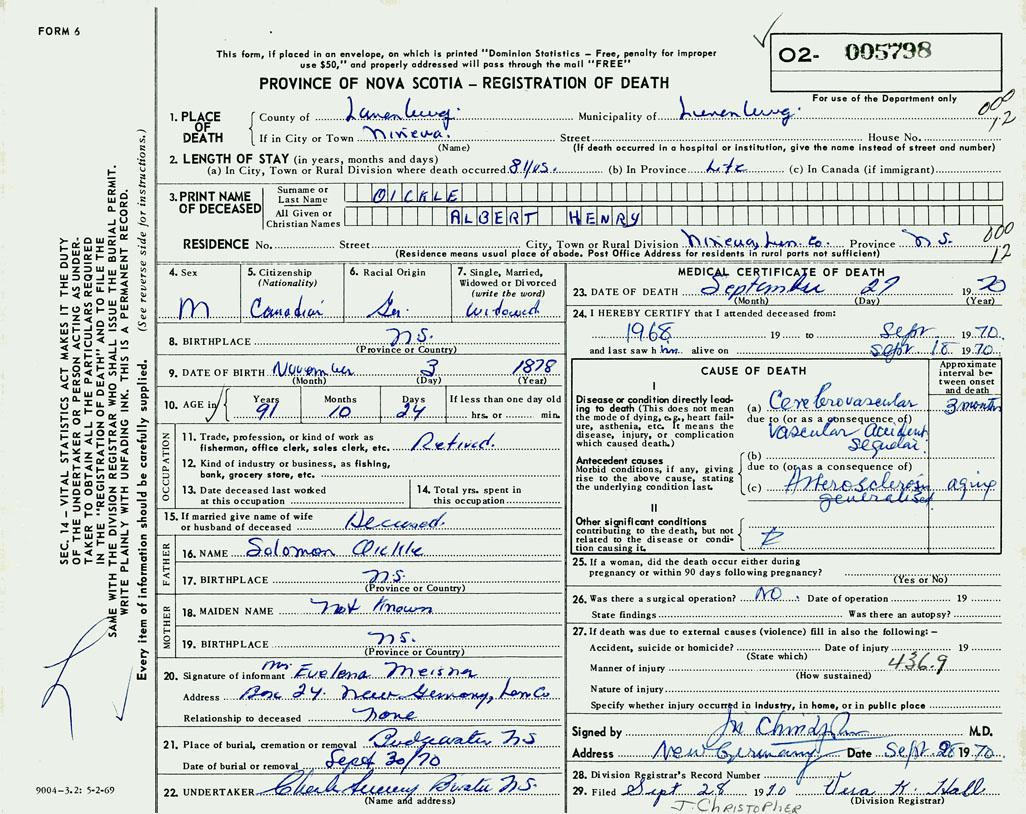 FORM 6
This form, if placed in an envelope, on which is printed "Dominion Statistics – Free, penalty for improper
use $50," and properly addressed will pass through the mail "FREE"
PROVINCE OF NOVA SCOTIA – REGISTRATION OF DEATH
O2- 005798
For use of the Department only
000
12
1. PLACE OF DEATH
County of Lunenburg. Municipality of Lunenburg.
If in City or Town Nineva. Street House No.
(Name) (If death occurred in a hospital or institution, give the name instead of street and number)
2. LENGTH OF STAY (in years, months and days)
(a) In City, Town or Rural Division where death occurred (b) In Province Life (c) In Canada (if immigrant)
3. PRINT NAME OF DECEASED
Surname or Last Name OICKLE
All Given or Christian Names ALBERT HENRY
RESIDENCE No. Street City, Town or Rural Division Nineva, Lun. Co. Province N.S.
(Residence means usual place of abode. Post Office Address for residents in rural parts not sufficient)
000
12
4. Sex M
5. Citizenship (Nationality) Canadian
6. Racial Origin Ger.
7. Single, Married, Widowed or Divorced (write the word) Widowed
8. BIRTHPLACE N.S.
(Province or Country)
9. DATE OF BIRTH November 3 1878
(Month) (Day) (Year)
10. AGE in Years 91 Months 10 Days 24 If less than one day old
hrs. or min.
OCCUPATION
11. Trade, profession, or kind of work as
fisherman, office clerk, sales clerk, etc. Retired.
12. Kind of industry or business, as fishing,
bank, grocery store, etc.
13. Date deceased last worked
at this occupation
14. Total yrs. spent in
this occupation
15. If married give name of wife
or husband of deceased Deceased.
FATHER
16. NAME Solomon Oickle
17. BIRTHPLACE N.S.
(Province or Country)
MOTHER
18. MAIDEN NAME Not Known
19. BIRTHPLACE N.S.
(Province or Country)
20. Signature of informant Evelena Meisner
Address Box 24. New Germany, Lun Co
Relationship to deceased None
21. Place of burial, cremation or removal Bridgewater NS
Date of burial or removal Sept 30/70
22. UNDERTAKER N.S.
(Name and address)
MEDICAL CERTIFICATE OF DEATH
23. DATE OF DEATH September 27 1970
(Month) (Day) (Year)
24. I HEREBY CERTIFY that I attended deceased from:
1968 19 to Sept 1970
and last saw him alive on Sept 18 1970
CAUSE OF DEATH
Approximate interval between onset and death
I
Disease or condition directly leading to death (This does not mean the mode of dying, e.g., heart failure, asthenia, etc. It means the disease, injury, or complication which caused death.)
(a) Cerebrovascular 3 months
due to (or as a consequence of)
Vascular accident
sequelae.
Antecedent causes
Morbid conditions, if any, giving rise to the above cause, stating the underlying condition last.
(b)
due to (or as a consequence of)
(c) Arterosclerosis aging
generalised
II
Other significant conditions
contributing to the death, but not related to the disease or condition causing it.
25. If a woman, did the death occur either during
pregnancy or within 90 days following pregnancy?
(Yes or No)
26. Was there a surgical operation? NO. Date of operation 19
State findings Was there an autopsy?
27. If death was due to external causes (violence) fill in also the following: –
Accident, suicide or homicide? Date of injury 19
(State which)
Manner of injury 436.9
(How sustained)
Nature of injury
Specify whether injury occurred in industry, in home, or in public place
Signed by M.D.
Address New Germany Date Sept. 28 1970
28. Division Registrar's Record Number
29. Filed Sept 28 1970 Vera K. Hall
(Division Registrar)
J. CHRISTOPHER
SEC. 14 – VITAL STATISTICS ACT MAKES IT THE DUTY
OF THE UNDERTAKER OR PERSON ACTING AS UNDER-
TAKER TO OBTAIN ALL THE PARTICULARS REQUIRED
IN THE "REGISTRATION OF DEATH" AND TO FILE THE
SAME WITH THE DIVISION REGISTRAR WHO SHALL ISSUE THE BURIAL PERMIT.
WRITE PLAINLY WITH UNFADING INK. THIS IS A PERMANENT RECORD.
Every item of information should be carefully supplied. (See reverse side for instructions.)
9004-3.2: 5-2-69